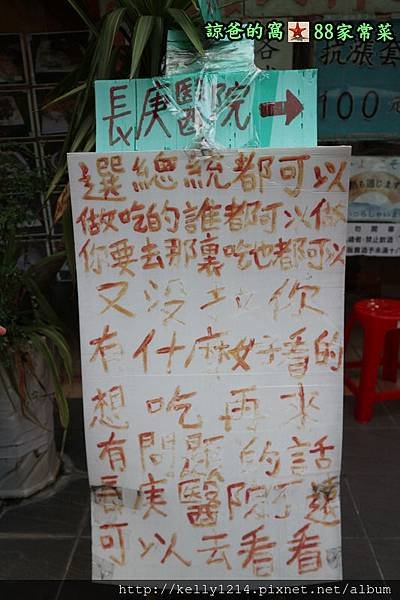 諒爸的窩 88家常菜
抗漲套
100元
長庚醫院→
選總統都可以
做吃的誰都可以做
你要去那裏吃也都可以
又沒拉你
有什麼好看的
想吃再來
有問題的話
長庚醫院不遠
可以去看看
http://kelly1214.pixnet.net/album